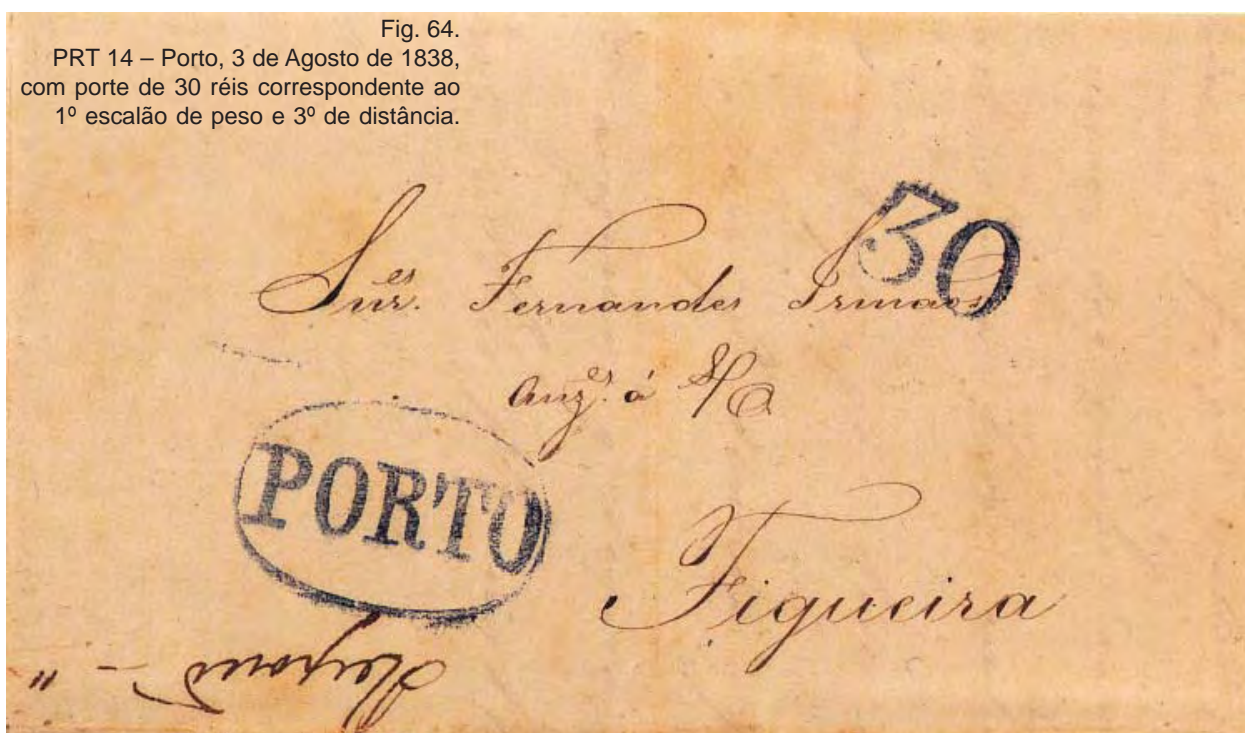 Fig. 64.
PRT 14 – Porto, 3 de Agosto de 1838,
com porte de 30 réis correspondente ao
1º escalão de peso e 3º de distância.
30
Snres. Fernandes Irmãos
á
PORTO
Figueira